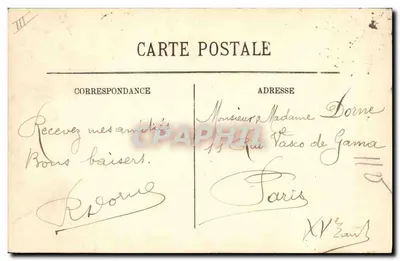 III
CARTE POSTALE
CORRESPONDANCE
Recevez mes amitiés
Bons baisers.
RDorne
ADRESSE
Monsieur Madame Dorne
11 Rue Vasco de Gama
Paris
XVe
CPAPHIL